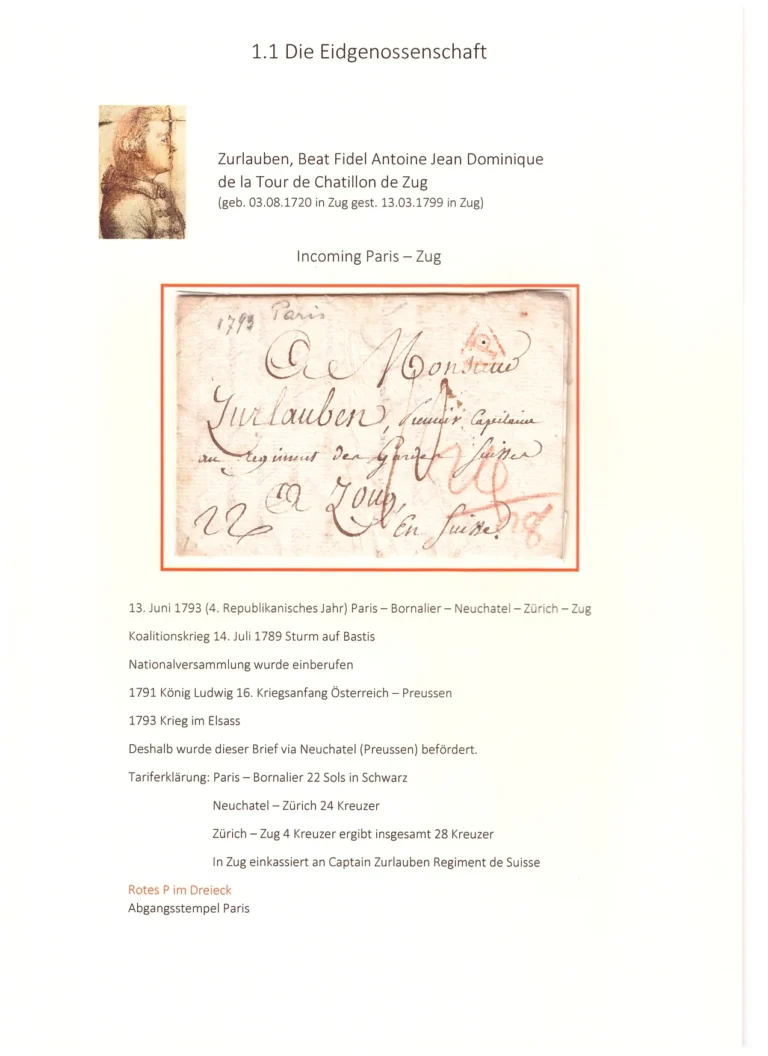 1.1 Die Eidgenossenschaft
Zurlauben, Beat Fidel Antoine Jean Dominique
de la Tour de Chatillon de Zug
(geb. 03.08.1720 in Zug gest. 13.03.1799 in Zug)
Incoming Paris – Zug
1793 Paris
P
A Monsieur
Zurlauben, premier Capitaine
au Regiment des Gardes Suisses
24
A Zoug,
22 En Suisse.
28
13. Juni 1793 (4. Republikanisches Jahr) Paris – Bornalier – Neuchatel – Zürich – Zug
Koalitionskrieg 14. Juli 1789 Sturm auf Bastis
Nationalversammlung wurde einberufen
1791 König Ludwig 16. Kriegsanfang Österreich – Preussen
1793 Krieg im Elsass
Deshalb wurde dieser Brief via Neuchatel (Preussen) befördert.
Tariferklärung: Paris – Bornalier 22 Sols in Schwarz
Neuchatel – Zürich 24 Kreuzer
Zürich – Zug 4 Kreuzer ergibt insgesamt 28 Kreuzer
In Zug einkassiert an Captain Zurlauben Regiment de Suisse
Rotes P im Dreieck
Abgangsstempel Paris